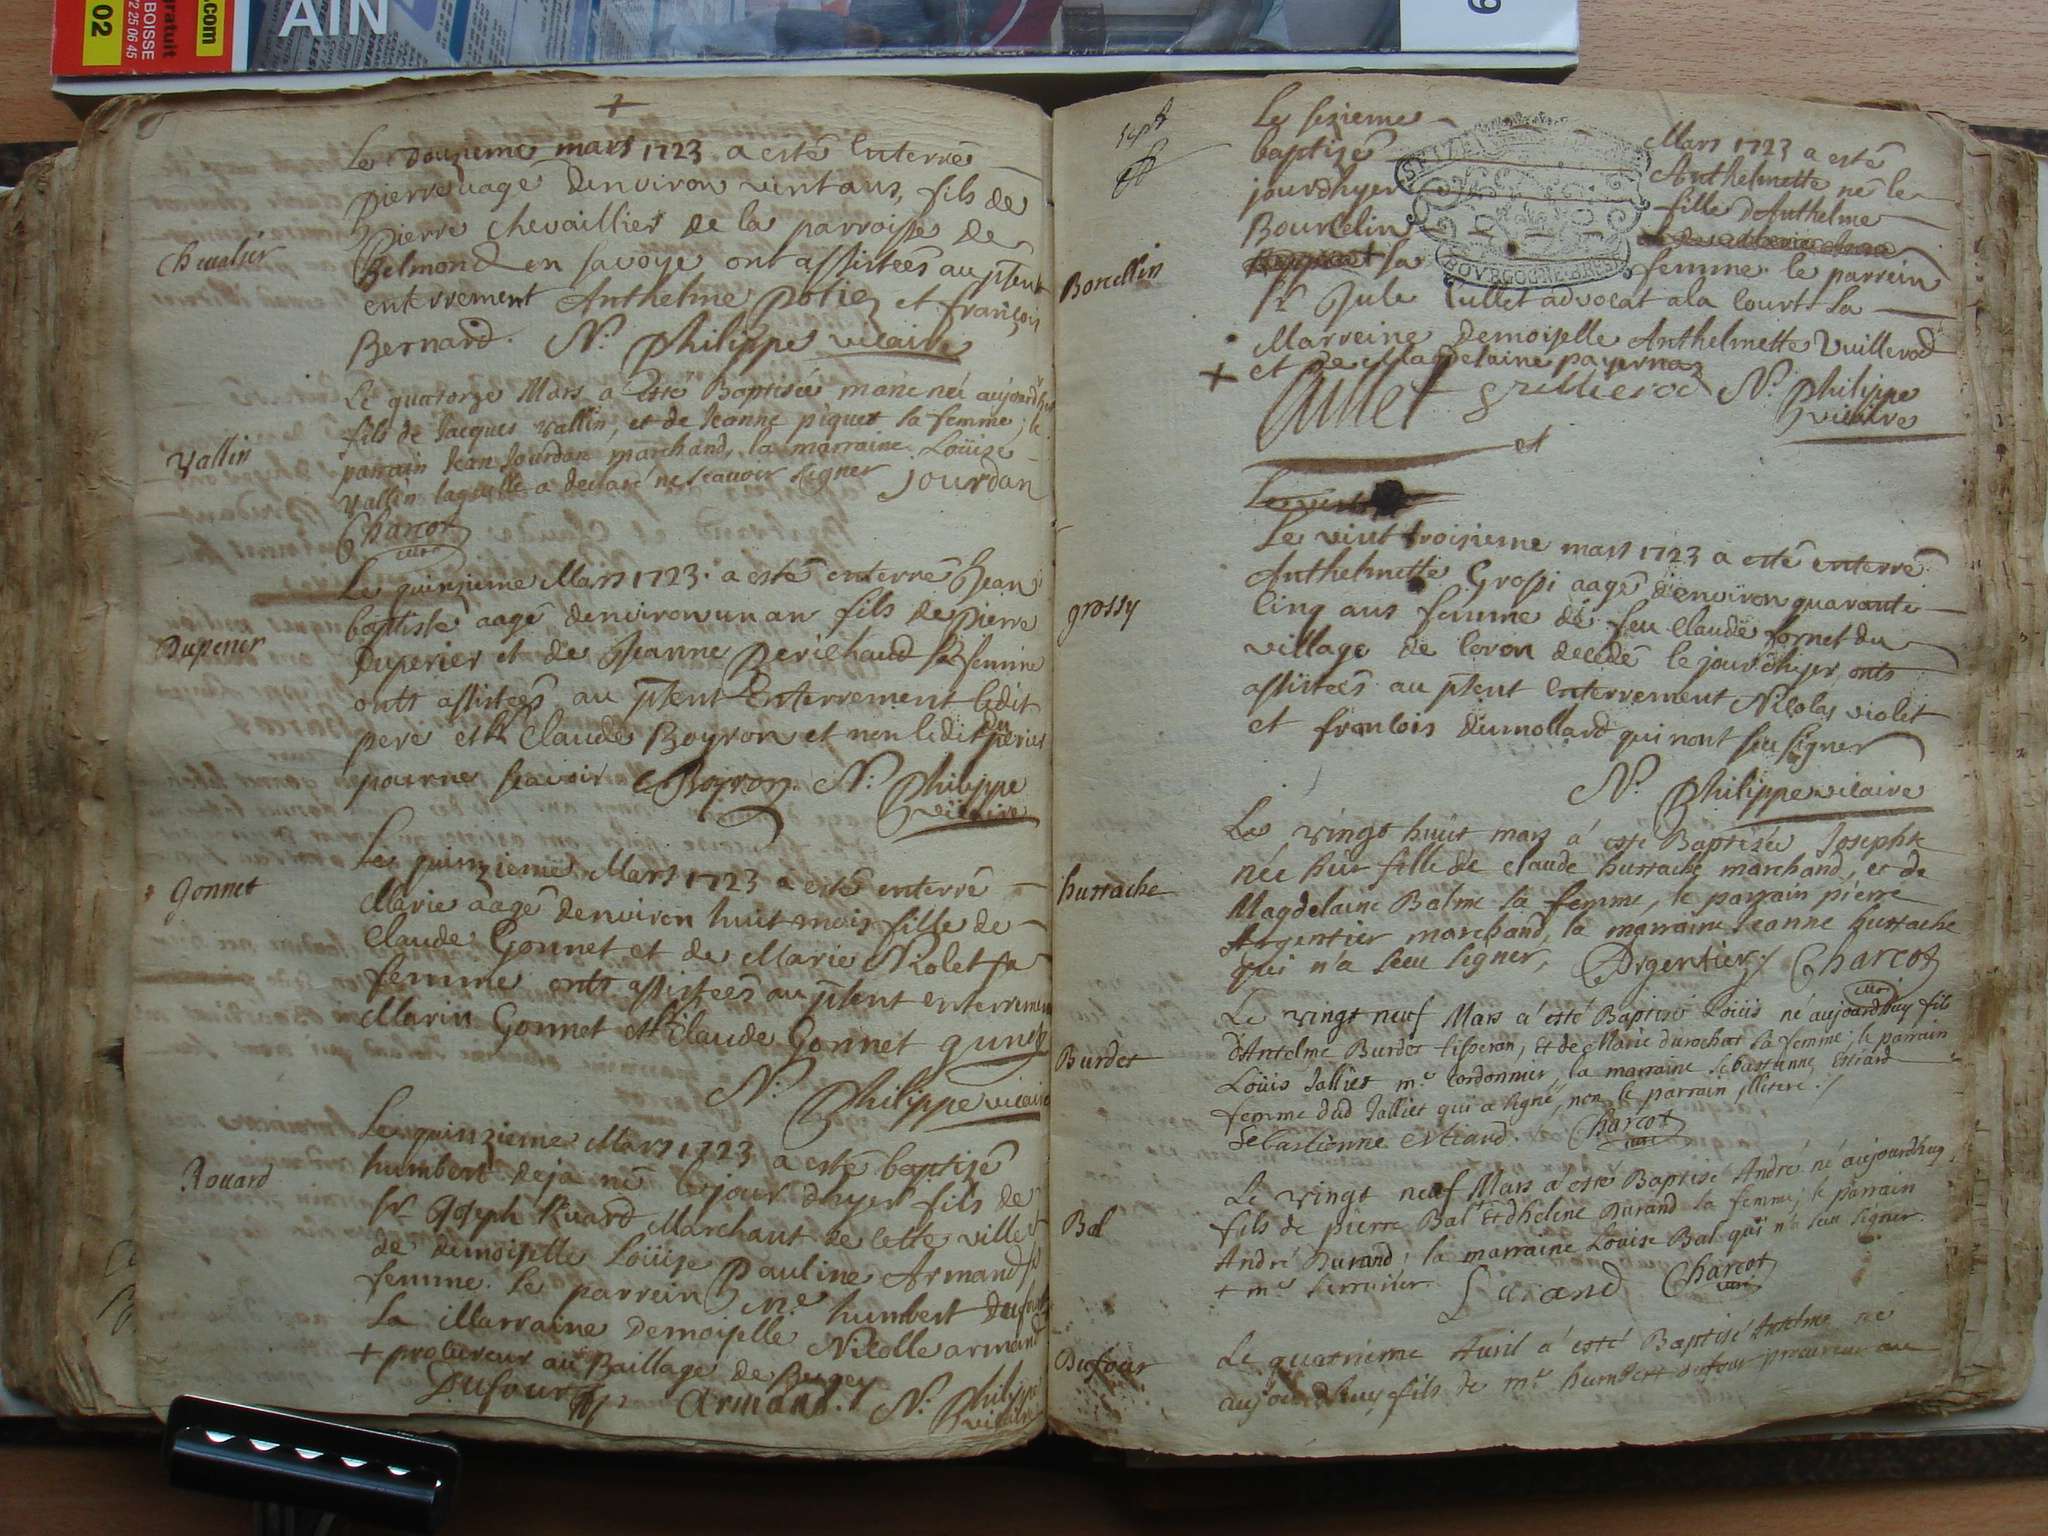 AIN
gratuit
.com
BOISSE
72 25 06 45
02
9
Le douzieme mars 1723 a esté Enterré
pierre aage denviron vint ans, fils de
pierre chevaillier de la parroisse de
Belmond en savoye ont assistees au pñt
enterrement Anthelme et françois
Bernard. N. philippe vicaire
Chevalier
Le quatorze Mars a esté Baptisée marie née aujourdhuy
fils de Jacques vallin, et de Jeanne piquet sa femme, le
parrain Jean Jourdan marchand, la marraine Loüise
vallin laquelle a declaré ne scavoir signer jourdan
Charcot
curé
vallin
Le quinzieme Mars 1723 a esté enterré Jean
baptiste aagé denviron un an fils de pierre
Duperier et de Jeanne sa femme
onts assistees au pñt Enterrement ledit
pere et Claude Boyron et non ledit duperier
pour ne scavoir Boyron N. philippe
vicaire
Duperier
Le quinzieme Mars 1723 a esté enterré
Marie aagé denviron huit mois fille de
Claude Gonnet et de Marie Violet sa
femme onts assistees au pñt enterrement
Marin Gonnet et Claude Gonnet gunet
N. philippe vicaire
Gonnet
Le quinzieme Mars 1723 a esté baptisé
humbert deja né le jour dhyer fils de
sr Joseph Ruard Marchant de cette ville et
de demoiselle Loüise Pauline Armand sa
femme. le parrein me humbert dufour
La Marraine Demoiselle Nicolle armand
+ procureur au Baillage de Bugey
Dufour armand. N. philippe
vicaire
Rouard
Le sezieme Mars 1723 a esté
baptizé Anthelmette né le
jourdhyer fille dAnthelme
Bourcelin
sa femme. le parrein
sr Jule Cullet advocat a la Court La
Marreine Demoiselle Anthelmette Vuillerod
+ et de Magdelaine payernaz
Cullet Vuillerod N. philippe
vicaire
Borcellin
Le vint troisieme mars 1723 a esté enterré
Anthelmette Grossi aagé denviron quarante
cinq ans femme de feu Claude fornet du
village de Coron decedé le jour dhyer, onts
assistees au pñt enterrement Nicolas violet
et francois dumollard qui nont seu signer
N. philippe vicaire
grossy
Le vingt huit mars a esté Baptisée Josephte
née hier fille de claude hustache marchand, et de
Magdelaine Balme sa femme, le parrain pierre
Argentier marchand, la marraine Jeanne hustache
qui n'a sceu signer, Argentier Charcot
curé
hustache
Le vingt neuf Mars a esté Baptisé Loüis né aujourdhuy fils
d'Antelme Burdet tisseran, et de Marie durochat sa femme, le parrain
Loüis Jalliet me Cordonnier, la marraine Sebastienne Estiard
femme dud Jalliet qui a signé, non le parrain illiteré.
Sebastienne Charcot
curé
Burdet
Le vingt neuf Mars a esté Baptisé André né aujourdhuy
fils de pierre Bal et dhelene Durand sa femme, le parrain
André Durand, la marraine Loüise Bal qui n'a sceu signer.
+ me serrurier Durand Charcot
curé
Bal
Le quatrieme Avril a esté Baptisé Antelme né
aujourdhuy fils de me humbert dufour procureur au
Dufour